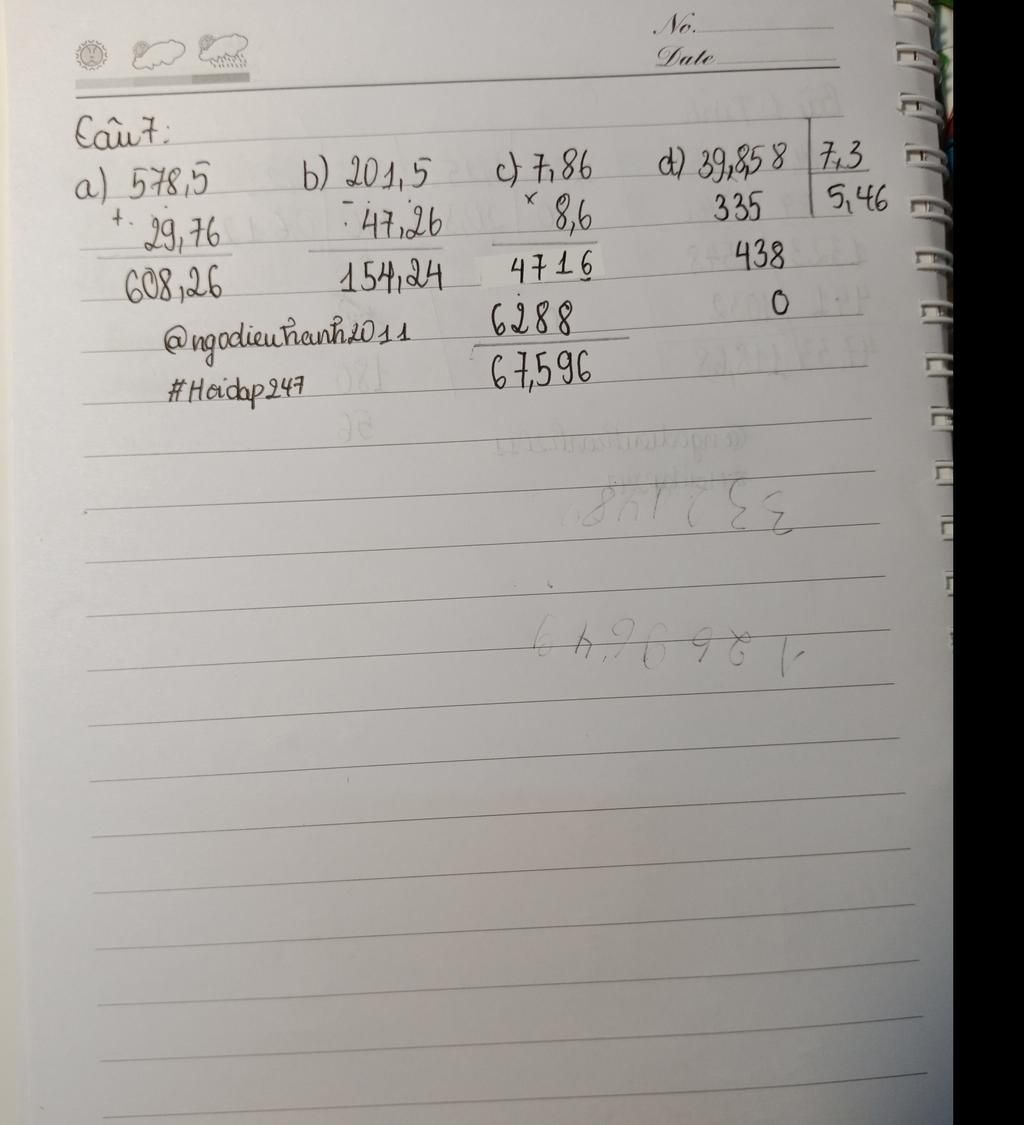 No.
Date
Câu 7:
a) 578,5 b) 201,5 c) 7,86 d) 39,858 | 7,3
+ 29,76 - 47,26 × 8,6 335 5,46
608,26 154,24 4716 438
@ngodieuhanh2011 6288 0
#Hoidap247 67,596